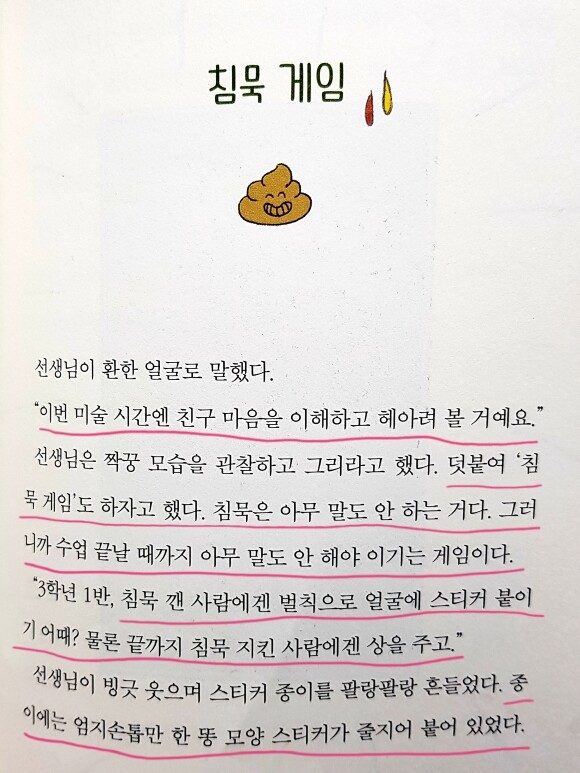 침묵 게임
선생님이 환한 얼굴로 말했다.
“이번 미술 시간엔 친구 마음을 이해하고 헤아려 볼 거예요.”
선생님은 짝꿍 모습을 관찰하고 그리라고 했다. 덧붙여 ‘침
묵 게임’도 하자고 했다. 침묵은 아무 말도 안 하는 거다. 그러
니까 수업 끝날 때까지 아무 말도 안 해야 이기는 게임이다.
“3학년 1반, 침묵 깬 사람에겐 벌칙으로 얼굴에 스티커 붙이
기 어때? 물론 끝까지 침묵 지킨 사람에겐 상을 주고.”
선생님이 빙긋 웃으며 스티커 종이를 팔랑팔랑 흔들었다. 종
이에는 엄지손톱만 한 똥 모양 스티커가 줄지어 붙어 있었다.